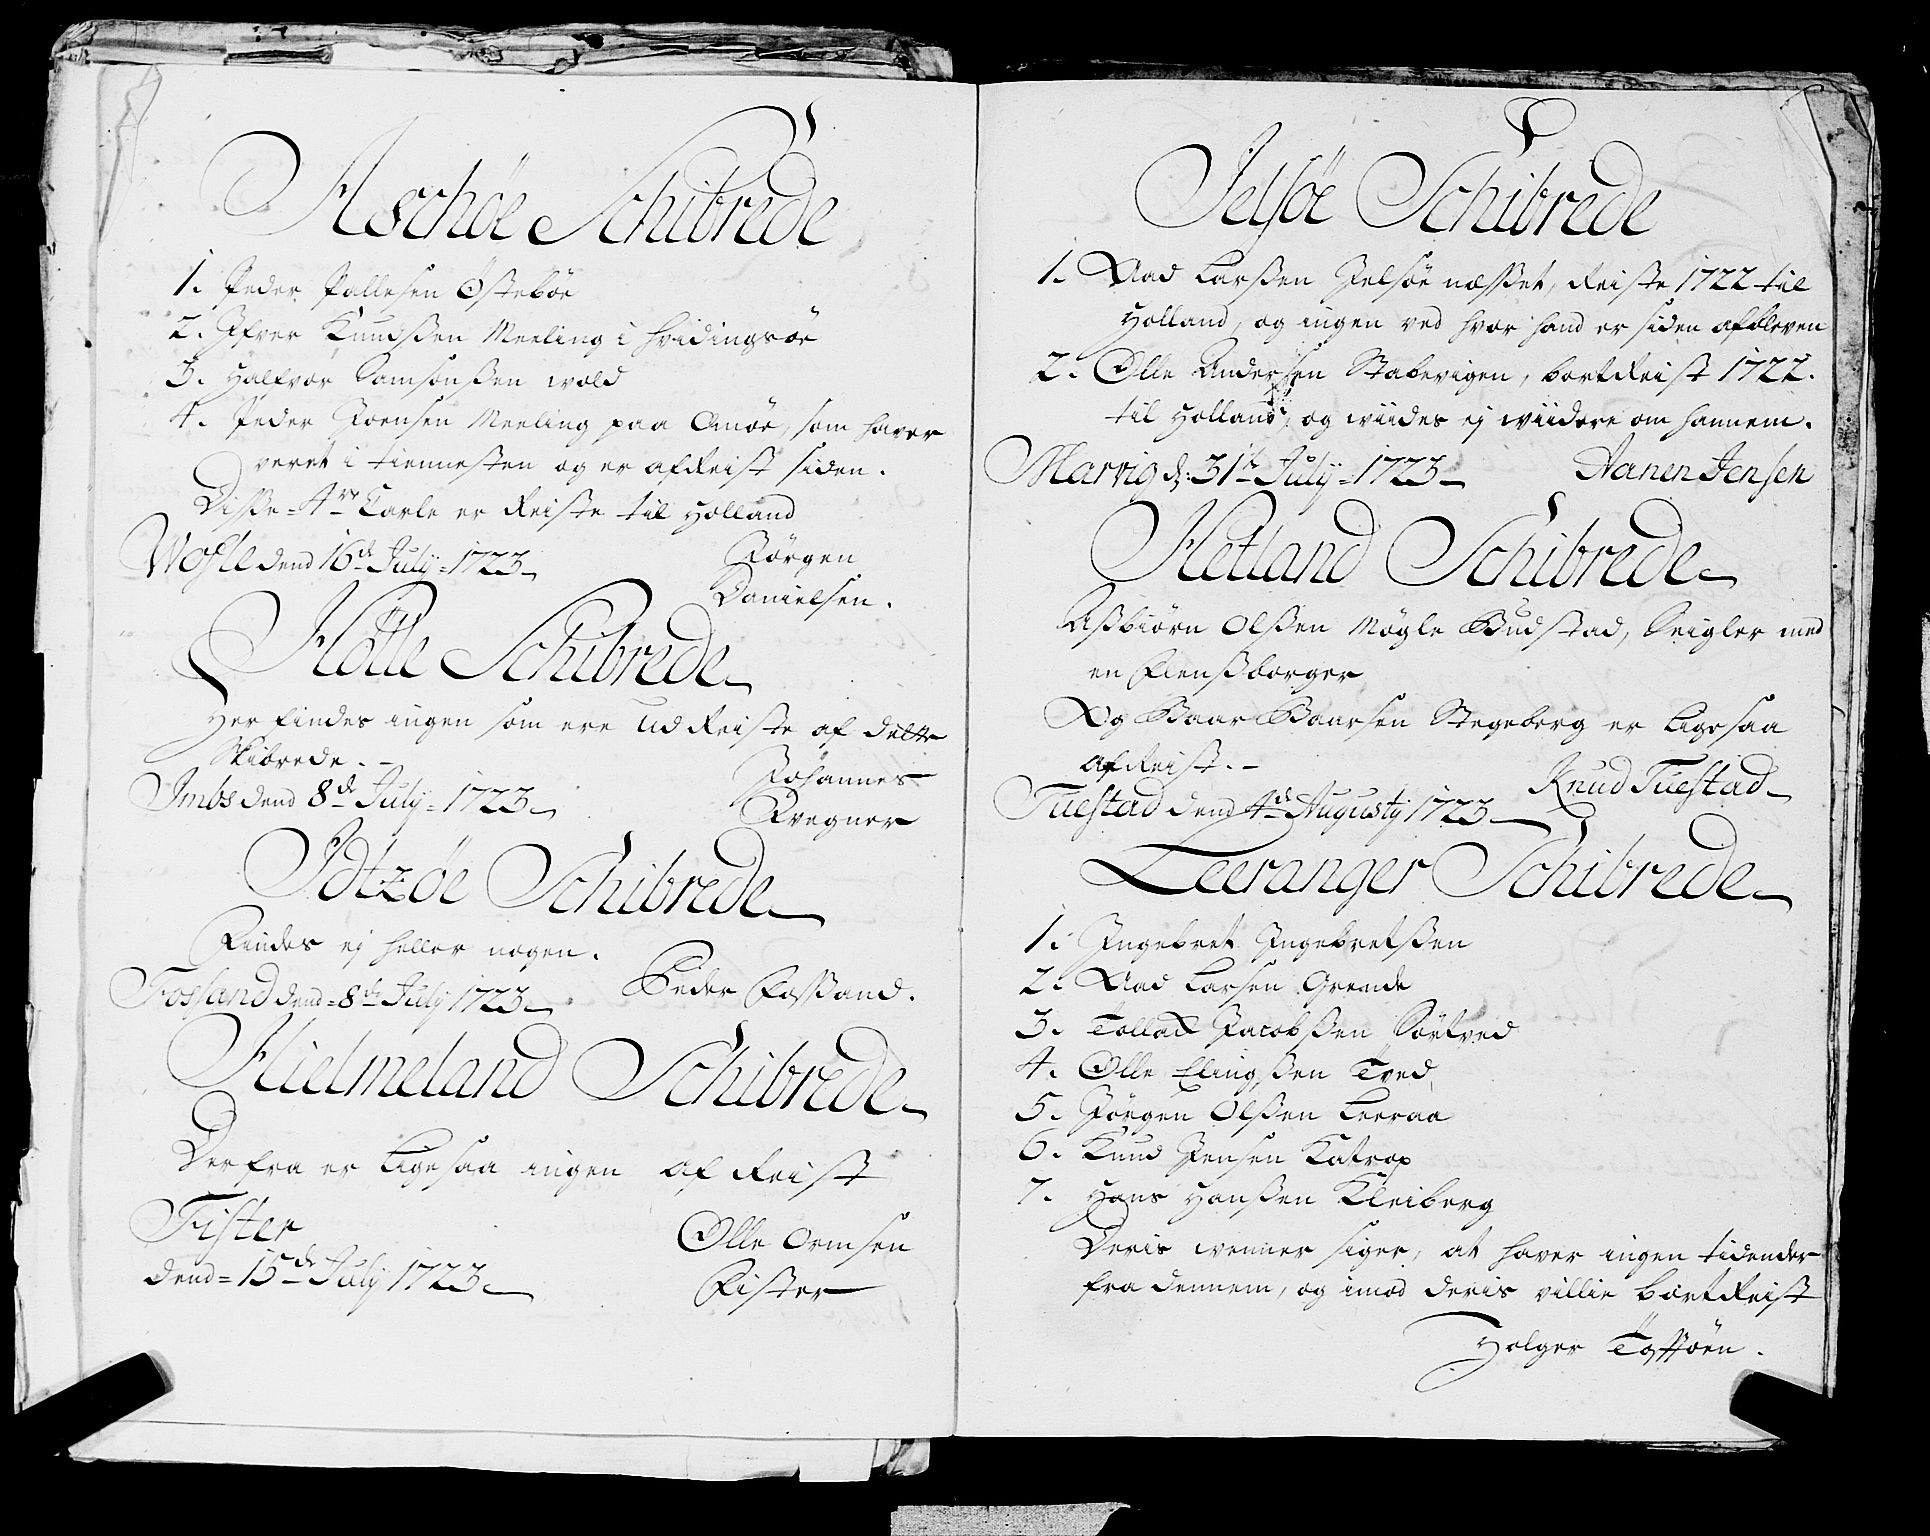 Aschøe Schibrede
1. Peder Pallesen Östebøe
2. Ifver Knudsßen Meeling i hvidingsöe
3. Halfvor Samsonßen wold
4. Peder Joensen Meeling paa Omöe, som haver
veret i tiennesten og er afReist siden.
Disse=4re Karle er Reiste til Holland
Wofle dend 16de July=1723
Jörgen
Danielsen.
Hölle Schibrede
Her findes ingen som ere udReiste af dette
Skibrede.
Imbs dend 8de July=1723
Johannes
Kregner
Idtzöe Schibrede
Findes ej heller nogen.
Fosßand dend=8de July 1723
Peder Foßand.
Hielmeland Schibrede
Derfra er ligesaa ingen afReist
Fister
dend=15de July 1723
Olle Ormsen
Fister
Jelsöe Schibrede
1. Aad Larßen Jelsöe næsset, Reiste 1722 til
Holland, og ingen ved hvor hand er siden afbleven
2. Olle Andersen Stabevigen, bortReist 1722.
til Holland, og wiides ej wiidere om hannem.
Marvig d: 31te July=1723
Aanen Jensen
Hetland Schibrede
Aßbiörn Olßen Mögle Budstad, Seigler med
en Flensßborger
Og Baar Baarsen Stegeberg er ligesaa
afReist.
Tuestad dend 4de Augusty 1723
Knud Tuestad
Leeranger Schibrede
1. Ingebret Ingebretßen
2. Aad Larsen Grende
3. Tollak Jacobßen Sörtved
4. Olle Elingßen Tved
5. Jörgen Olßen Leeraa
6. Knud Jensen Katrop
7. Hans Hanßen Kleiberg
Deris wenner siger, at haver ingen tidender
fra dennem, og imod deris villie bortReist
Holger